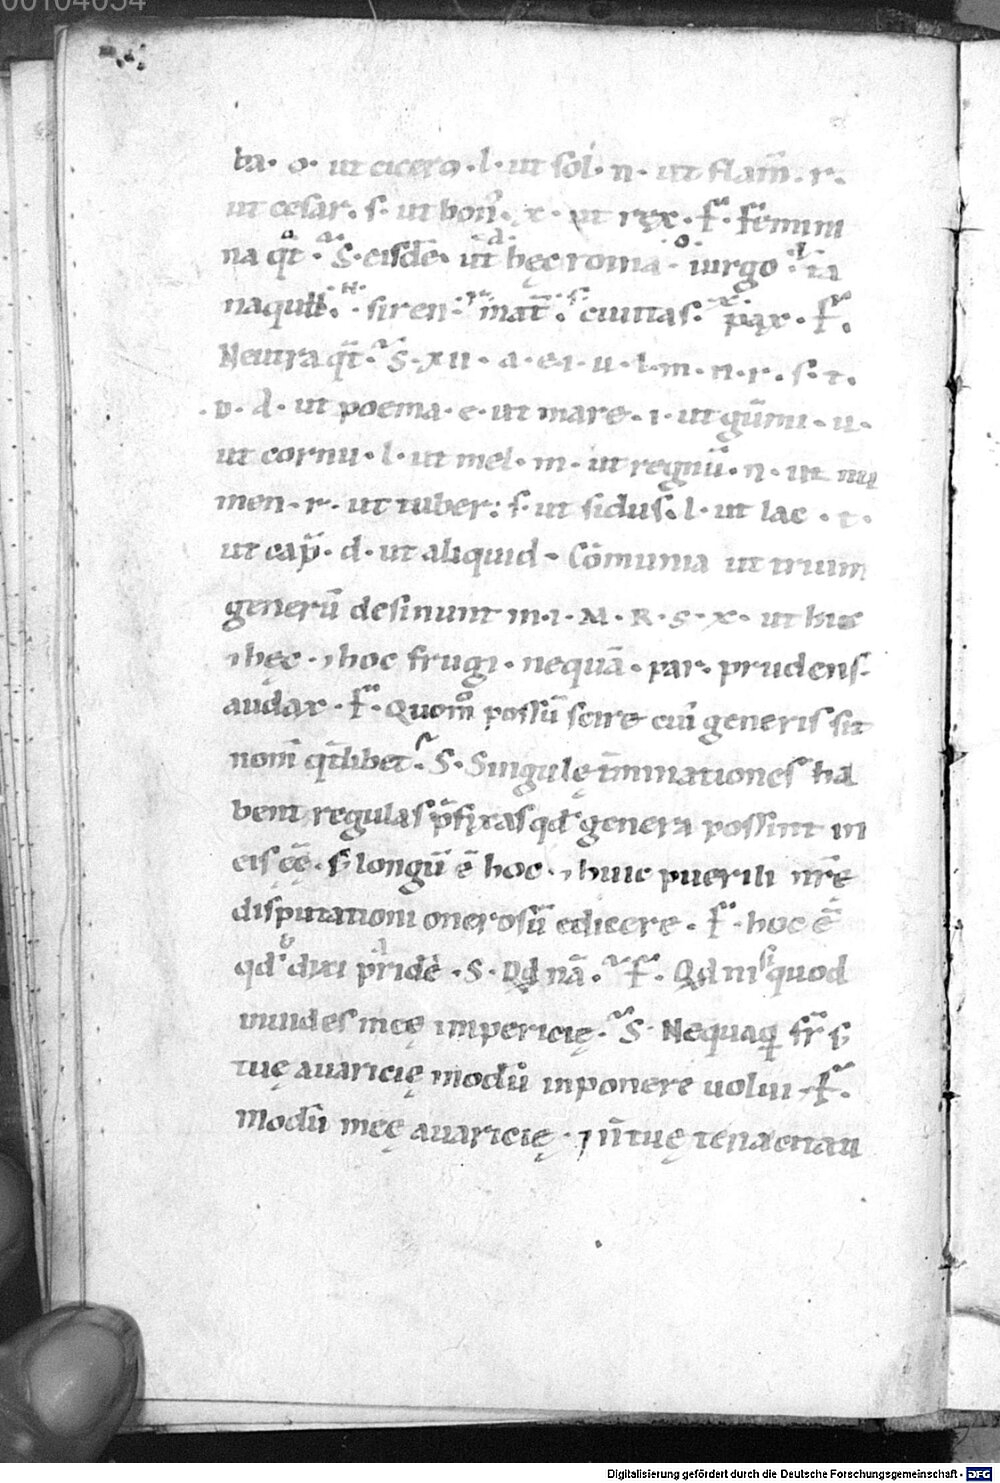 00104054
ba· o· ut cicero· l· ut sol· n· ut flam̄· r·
ut cesar· s· ut bon᷒· x· ut rex· F᷒· Femini
na qt̄· S· eisdē· ut hęc roma· uirgo· ia
naquil· siren· mat̄· ciuitas· pax· F᷒·
Neutra qt̄· S· XII· a· e· i· u· l· m· n· r· s· t·
c· d· ut poema· e· ut mare· i· ut gūmi· u·
ut cornu· l· ut mel· m· ut regnū· n· ut nu
men· r· ut tuber· s· ut sidus· l· ut lac· t·
ut cap̄· d· ut aliquid· Cōmunia ut trium
generū desinunt in· i· M· R· S· X· ut huic
⁊ hęc· ⁊ hoc frugi· nequā· par· prudens·
audax· F᷒· Quom̊ possū scire cui᷒ generis sit
nom̄ qdlibet· S· Singulę t̄minationes ha
bent regulas p̄fixas qd̄ genera possint in
eis eē· s; longū ē hoc· ⁊ huic puerili nr̄ę
disputationi onerosū edicere· F᷒· hoc ē
qd̄ dixi pridē· S· Qd nā· F᷒· Qd nisi quod
inuides meę impericię· S· Nequaq̄ fr̄ s;
tuę auaricię modū inponere uolui· F᷒·
Modū meę auaricię· ⁊ n̄ tuę tenacitati
Digitalisierung gefördert durch die Deutsche Forschungsgemeinschaft - DFG